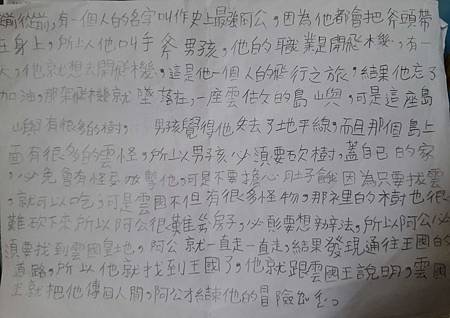 從前從前,有一個人的名字叫作史上最強阿公,因為他都會把斧頭帶
在身上,所以人他叫手斧男孩,他的職業是開飛機,有一
天,他就想去開飛機,這是他一個人的飛行之旅,結果他忘了
加油,那架飛機就墜落在,一座雲做的島山嶼,可是這座島
山嶼有很多的樹,男孩覺得他失去了地平線,而且那個島上
面有很多的雲怪,所以男孩必須要砍樹,蓋自己的家
,必免會有怪要攻擊他,可是不要擔心肚子餓因為只要拔雲
,就可以吃,可是雲國不但有很多怪物,那裡的樹也很
難砍下來所以阿公很難蓋房子,必須要想辦法,所以阿公必
須要找到雲國皇地,阿公就一直走一直走,結果發現通往王國的
道路,所以他就找到王國了,他就跟雲國王說明,雲國
王就把他傳回人間,阿公才結束他的冒險。